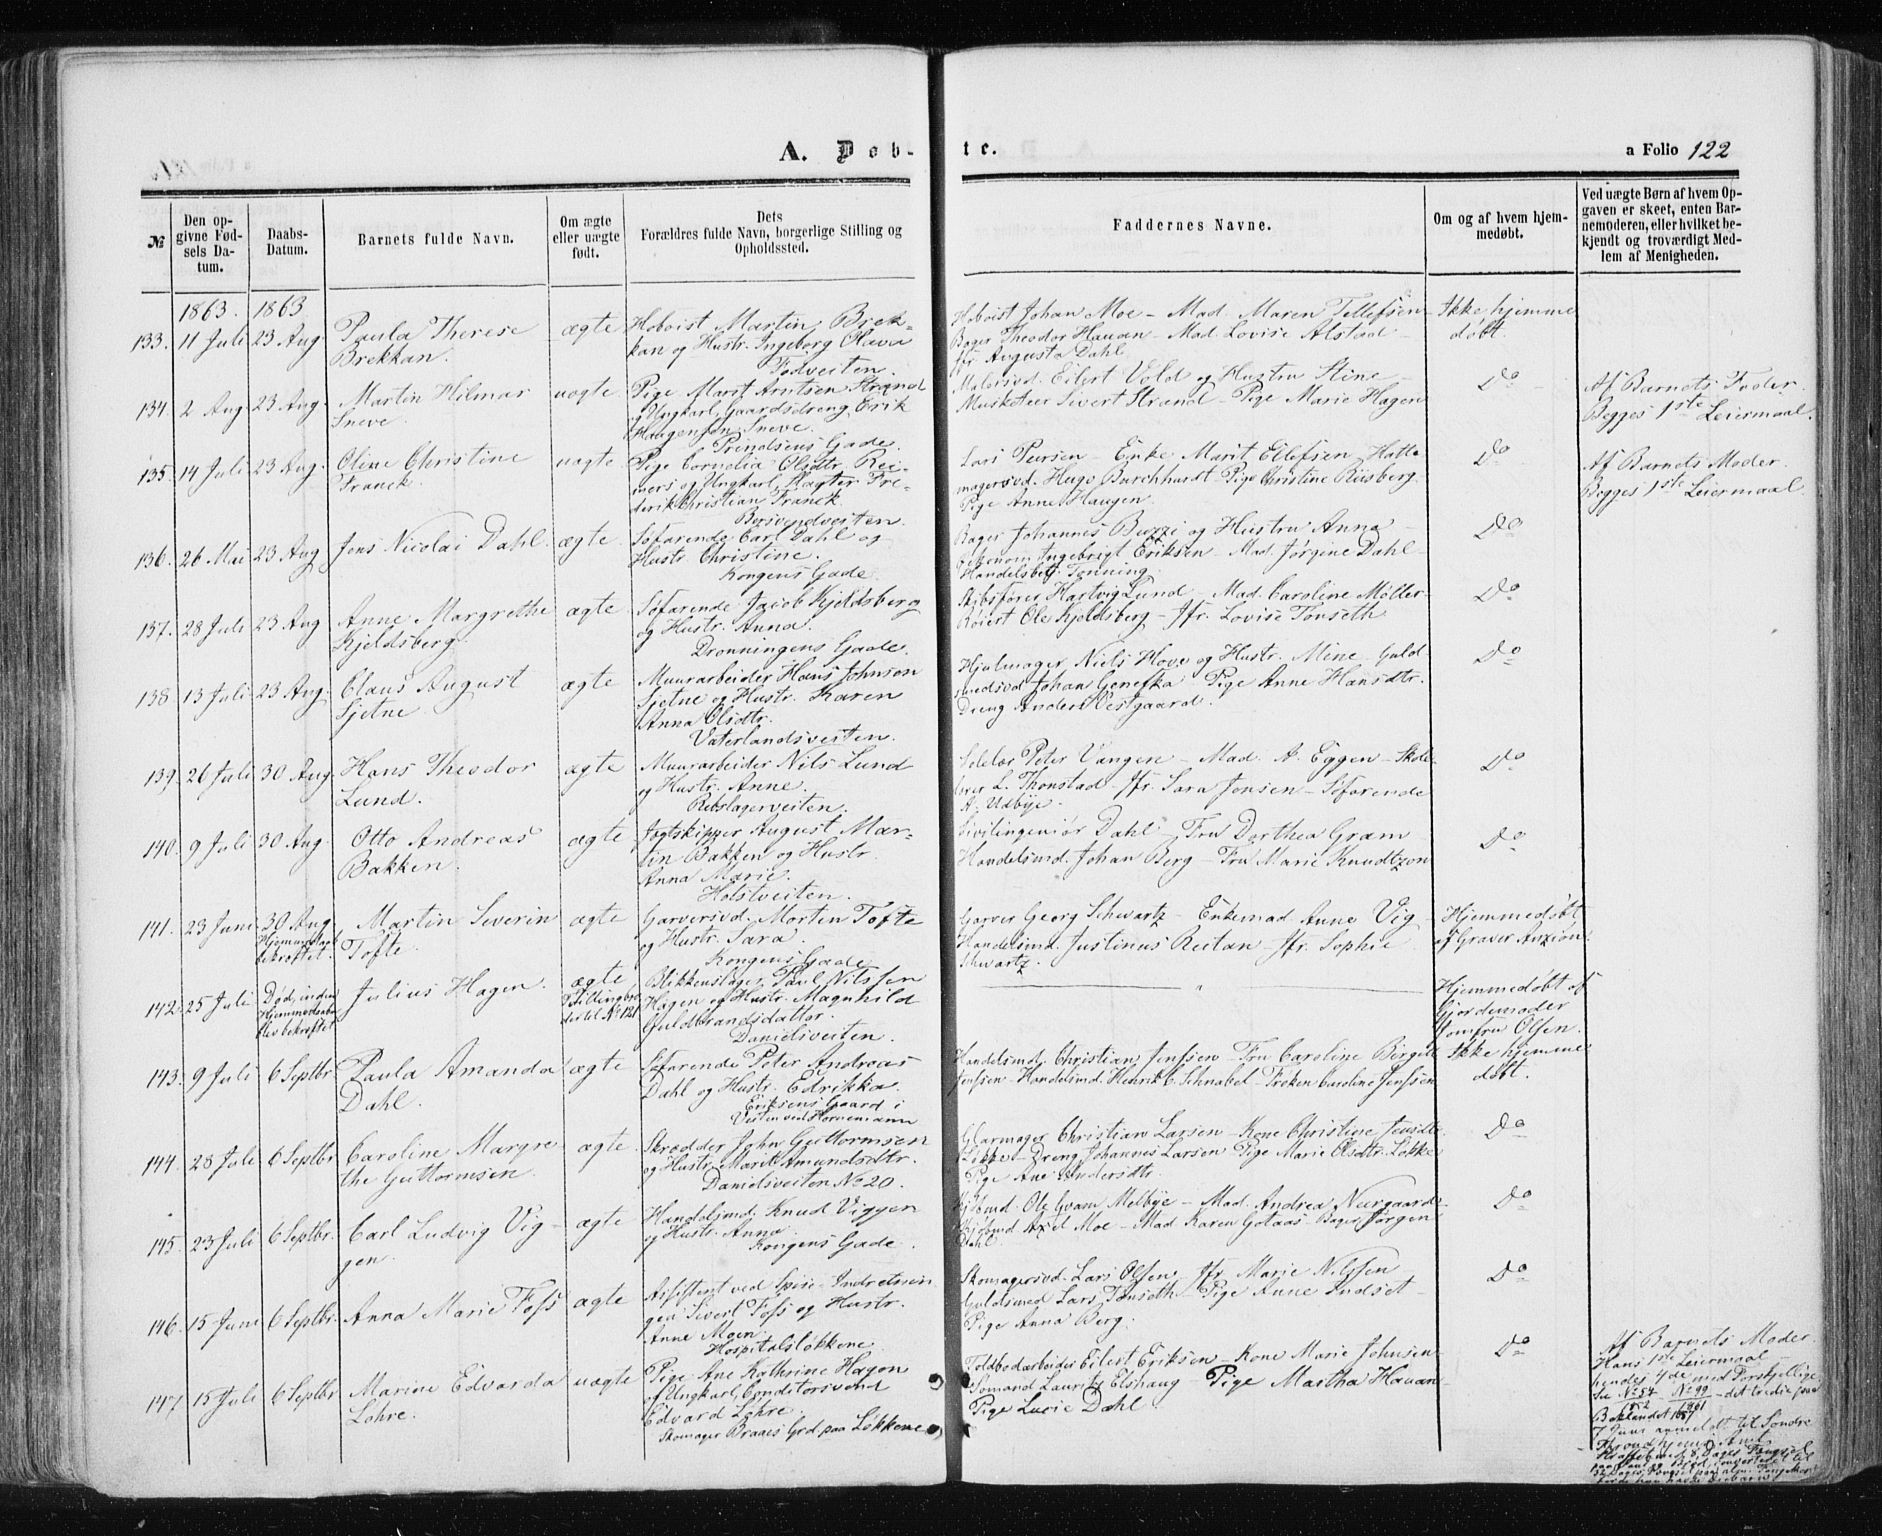 A. Døb-
te.
a Folio 122
№
Den op-
givne Fød-
sels Da-
tum.
Daabs-
Datum.
Barnets fulde Navn.
Om ægte
eller uægte
født.
Dets
Forældres fulde Navn, borgerlige Stilling og
Opholdssted.
Faddernes Navne.
Om og af hvem hjem-
medøbt.
Ved uægte Børn af hvem Op-
gaven er skeet, enten Bar-
nemoderen, eller hvilket be-
kjendt og troværdigt Med-
lem af Menigheden.
1863. 1863
133. 11 Juli 23 Aug Paula Therese
Brekkan.
ægte
Hoboist Martin Brek-
kan og Hustr. Ingeborg Olava
Fodveiten.
Hoboist Johan Moe - Mad. Maren Tellefsen
Bager Theodor Hauan - Mad. Lovise Alstad
Jfr Augusta Dahl
Ikke hjemme
døbt.
134. 2 Aug. 23 Aug. Martin Hilmar
Sneve.
uægte
Pige Marit Arntsen Strand
og Ungkarl, Gaardsdreng Erik
Haagensøn Sneve.
Prindsens Gade.
Malersvd. Eilert Vold og Hustru Stine
Musketeer Sivert Strand - Pige Marie Hagen
Do
Af Barnets Fader.
Begges 1ste Leiermaal.
135. 14 Juli 23 Aug. Oline Christine
Franck.
uægte
Pige Cornelia Olsdtr. Rei-
mers og Ungkarl, Hagter Fre-
derik Christian Franck
Borsvendveiten.
Lars Persen - Enke Marit Ellefsen Hatte
magersvd. Hugo Barchhardt Pige Christine Riisberg
Pige Anne Haugen
Do
Af Barnets Moder.
Begges 1ste Leiermaal.
136. 26 Mai 23 Aug Jens Nicolai Dahl.
ægte
Søfarende Carl Dahl og
Hustr. Christine.
Kongens Gade.
Bager Johannes Buzzi og Hustru Anna
Oekonom Ingebrigt Eriksen - Mad. Jørgine Dahl
Handelsbetj. Tønning.
Do
137. 28 Juli 23 Aug Anne Margrethe
Kjeldsberg.
ægte
Søfarende Jacob Kjeldsberg
og Hustr. Anna.
Dronningens Gade.
Skibsfører Hartvig Lund - Mad. Caroline Møller
Røiert Ole Kjeldsberg - Jfr. Lovise Tonseth
Do
138 13 Juli 23 Aug. Claus August
Sjetne.
ægte
Muurarbeider Hans Johnson
Sjetne og Hustr. Karen
Anna Olsdtr.
Vaterlandsveiten.
Hjulmager Niels Hove og Hustr. Mine - Guld
smedsvd. Johan Genefka Pige Anne Hansdtr.
Dreng Anders Vestgaard.
Do
139 26 Juli 30 Aug Hans Theodor
Lund.
ægte
Muurarbeider Nils Lund
og Hustr. Anne.
Rebslagerveiten.
Peter Vangen - Mad. A. Eggen - Skole
lærer L. Thonstad - Jfr. Sara Jonsen - Søfarende
A. Udbye.
Do
140. 9 Juli 30 Aug. Otto Andreas
Bakken.
ægte
Jagtskipper August Mar-
tin Bakken og Hustr.
Anna Marie
Holstveiten.
Civilingeniør Dahl - Fru Dorthea Gram
Handelsmd. Johan Berg - Fru Marie Knudtzon
Do
141. 23 Juni 30 Aug.
Hjemmedaab
bekræftet.
Martin Severin
Tofte.
ægte
Garversvd. Morten Tofte
og Hustr. Sara.
Kongens Gade.
Garver Georg Schwartz - Enkemad. Anne Vig
Handelsmd. Justinus Reitan - Jfr. Sophie
Schwartz.
Hjemmedøbt
af Graver Anzion.
142. 25 Juli
Død, inden
Hjemmedaaben
blev bekræftet
Julius Hagen.
ægte
Tvillingbro
der til No 121
Blikkenslager Paul Nilssen
Hagen og Hustr. Magnhild
Guldbrandsdatter.
Danielsveiten.
"
Hjemmedøbt af
Gjordemoder
Jomfru Olsen.
143. 9 Juli 6 Septbr. Paula Amanda
Dahl.
ægte
Søfarende Peter Andreas
Dahl og Hustr. Edrikka.
Eriksens Gaard i
Veiten ved Hornemann
Handelsmd. Christian Jenssen - Fru Caroline Birgitt
Jenssen - Handelsmd. Henrik C. Schnabel - Frøken Caroline Jenssen
Ikke hjemme
døbt.
144. 28 Juli 6 Septbr. Caroline Margre
the Guttormsen.
ægte
Skrædder John Guttormsen
og Hustr. Marit Amundsdtr.
Danielsveiten No 20.
Glarmager Christian Larsen - Kone Christine Jensdtr.
Løkke - Dreng Johannes Larsen Pige Marie Olsdtr. Løkke
Pige Ane Andersdtr.
Do
145. 23 Juli 6 Septbr. Carl Ludvig Vig-
gen.
ægte
Handelsmd. Knud Viggen
og Hustr. Anna.
Kongens Gade.
Kjøbmd. Ole Gram Melbye - Mad. Andrea Nergaard
Kjøbmd Axel Moe - Mad. Karen Gotaas - Bager Jørgen
Dahl.
Do
146. 15 Juni 6 Septbr. Anna Marie Foss
ægte
Assistent ved Spise-Indretnin
gen Sivert Foss og Hustr.
Anne Moen.
Hospitalsløkkene.
Skomagersvd. Lars Olsen, Jfr. Marie Nilssen
Guldsmed Lars Tonseth - Pige Anne Indset
Pige Anna Berg.
Do
147 15 Juli 6 Septbr Marine Edvarda
Lohre.
uægte
Pige Ane Kathrine Hagen
af Ungkarl, Conditorsvend
Edvard Lohre.
Skomager Braaes Grd paa Løkkene
Toldbodarbeider Eilert Eriksen - Kone Marie Johnsen
Sømand Lauritz Elshaug - Pige Martha Hauan
Pige Lucie Dahl.
Do
Af Barnets Moder.
Hans 1ste Leiermaal
hendes 4de med Forskjellige
See No 54 - No 99 - det tredie paa
1852 1861
Baklandet 1857